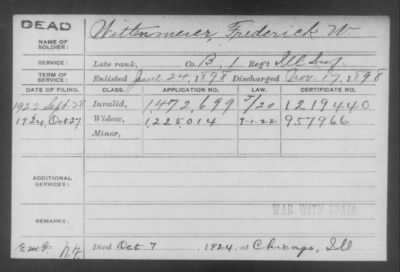 DEAD
NAME OF SOLDIER: Wittenmeier, Frederick W
SERVICE: Late rank, Co. B, 1 Reg't Ill Inf.
TERM OF SERVICE: Enlisted June 24, 1898 Discharged Nov. 17, 1898
DATE OF FILING. CLASS. APPLICATION NO. LAW. CERTIFICATE NO.
1922 Sept 28 Invalid, 1,472,699 5/20 1219440
1924, Oct 27 Widow, 1,225,014 9-1-22 957966
Minor,
ADDITIONAL SERVICES:
WAR WITH SPAIN
REMARKS:
Died Oct 7, 1924, at Chicago, Ill